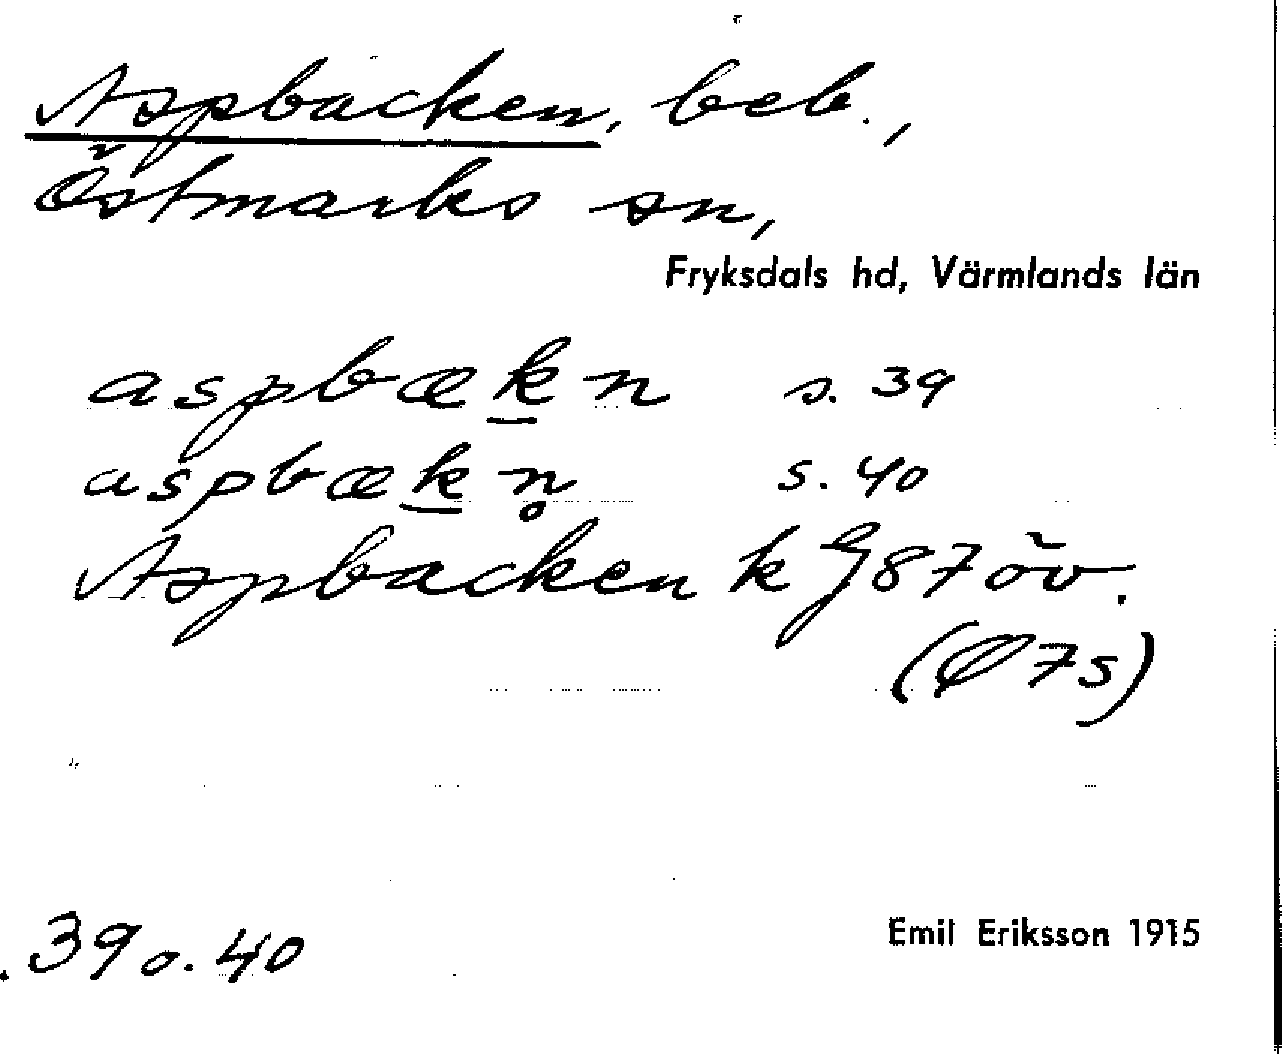 Aspbacken, beb.,
Östmarks sn,
Fryksdals hd, Värmlands län
aspbækn s. 39
aspbækn̥ s. 40
Aspbacken k G87 öv.
(Ø 7s)
.39 o. 40
Emil Eriksson 1915